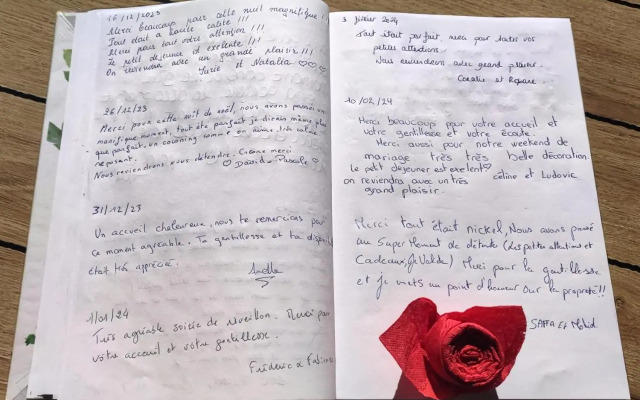 16/12/2023
Merci beaucoup pour cette nuit magnifique !!!
Tout était à haute calité !!!
Merci pour tout votre attention !!!
Le petit dejeuner d'exellente !!!
On reviendra avec un grande plaisir !!!
Iurie et Natalia
26/12/23
Merci pour cette nuit de noël, nous avons passés un
magnifique moment, tout été parfait je dirais même plus
que parfait, un cocooning comme on aime, très calme
reposant.
Nous reviendrons nous détendre. Encore merci
David et Pascale
31/12/23
Un accueil chaleureux, nous te remercions pour
ce moment agréable. Ta gentillesse et ta
était très appréciée.
1/01/24
Très agréable soirée de réveillon. Merci pour
votre accueil et votre gentillesse.
Frédéric &
3 février 2024
Tout était parfait, merci pour toutes vos
petites attentions.
Nous reviendrons avec grand plaisir.
Coralie et
10/02/24
Merci beaucoup pour votre accueil et
votre gentillesse et votre écoute.
Merci aussi pour notre weekend de
mariage très très belle décoration.
Le petit déjeuner est exelent
on reviendra avec un très
grand plaisir.
céline et Ludovic
Merci tout était nickel, Nous avons passé
au Super Moment de détente (Les petites attentions et
Cadeaux, Je Valide) Merci pour la gentillesse
et je mets un point d'honneur sur la propreté!!
SAFFA Et Mehid